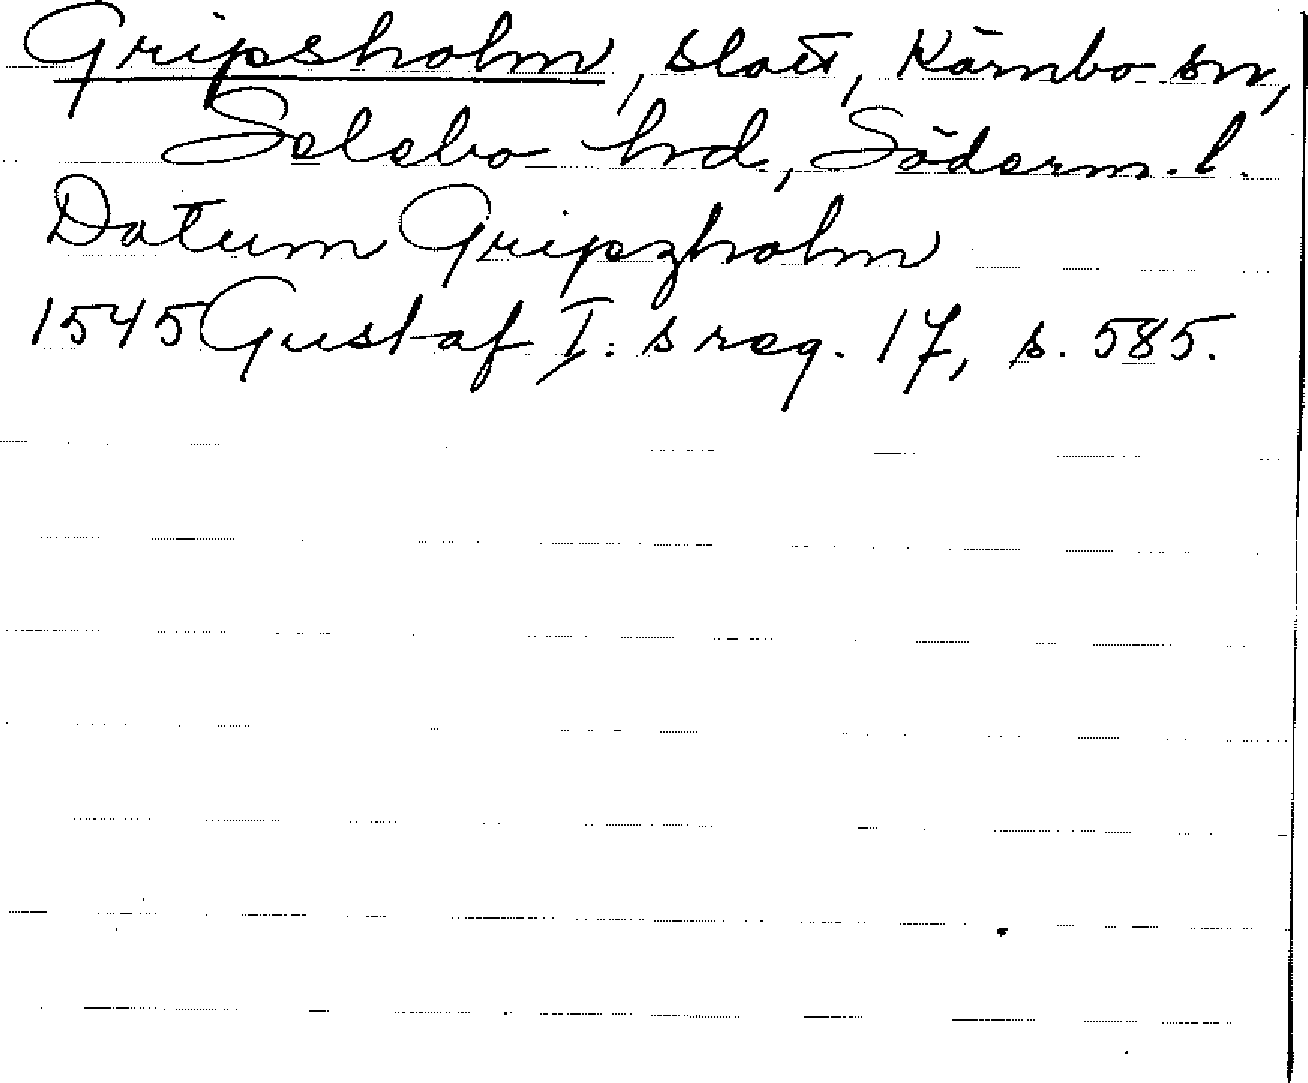 Gripsholm, slott, Kärnbo sn,
Selebo hd, Söderm. l.
Datum Gripzholm
1545 Gustaf I:s reg. 17, s. 585.